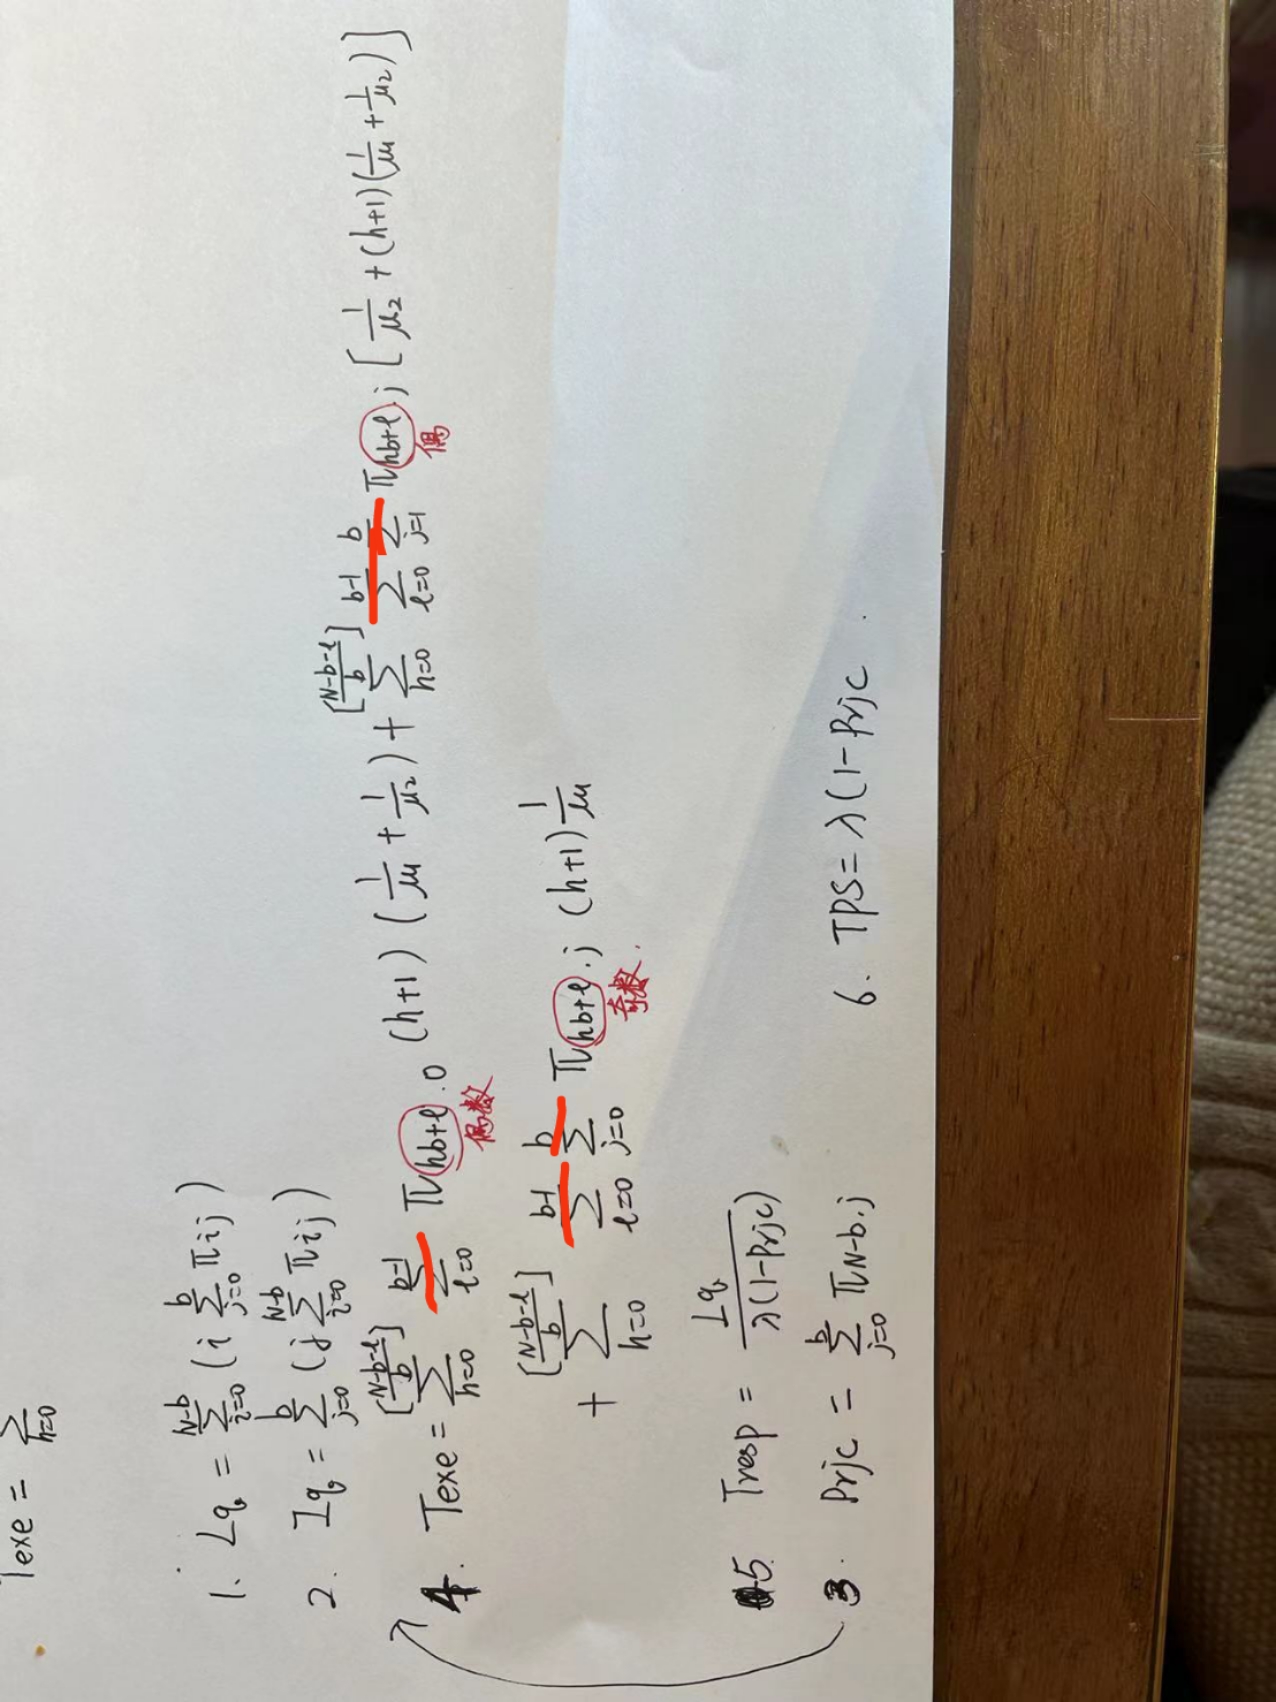 Texe = Σ_{h=0}
1. Lq = Σ_{i=0}^{N-b} (i Σ_{j=0}^{b} πij)
2. Iq = Σ_{j=0}^{b} (j Σ_{i=0}^{N-b} πij)
4. Texe = Σ_{h=0}^{[(N-b-ℓ)/b]} Σ_{ℓ=0}^{b-1} π_{hb+ℓ.0} (h+1) (1/μ1 + 1/μ2) + Σ_{h=0}^{[(N-b-ℓ)/b]} Σ_{ℓ=0}^{b-1} Σ_{j=1}^{b} π_{hb+ℓ.j} [1/μ2 + (h+1)(1/μ1 + 1/μ2)]
偶数 偶
+ Σ_{h=0}^{[(N-b-ℓ)/b]} Σ_{ℓ=0}^{b-1} Σ_{j=0}^{b} π_{hb+ℓ.j} (h+1) 1/μ1
奇数.
5. Tresp = Lq / λ(1-Prjc)
3. Prjc = Σ_{j=0}^{b} π_{N-b.j} 6. TPS = λ(1-Prjc .